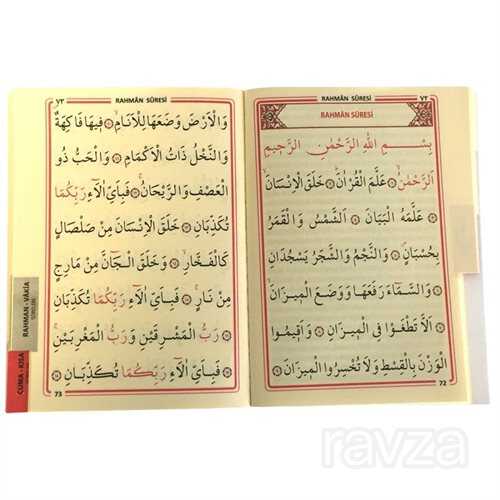 ٧٢
RAHMÂN SÛRESİ
RAHMÂN SÛRESİ
بِسْمِ اللهِ الرَّحْمٰنِ الرَّحِيمِ
اَلرَّحْمٰنُ ۞ عَلَّمَ الْقُرْاٰنَ ۞ خَلَقَ الْاِنْسَانَ ۞
عَلَّمَهُ الْبَيَانَ ۞ اَلشَّمْسُ وَالْقَمَرُ
بِحُسْبَانٍ ۞ وَالنَّجْمُ وَالشَّجَرُ يَسْجُدَانِ
۞ وَالسَّمَٓاءَ رَفَعَهَا وَوَضَعَ الْم۪يزَانَ
۞ اَلَّا تَطْغَوْا فِي الْم۪يزَانِ ۞ وَاَق۪يمُوا
الْوَزْنَ بِالْقِسْطِ وَلَا تُخْسِرُوا الْم۪يزَانَ
72
٧٣
RAHMÂN SÛRESİ
وَالْاَرْضَ وَضَعَهَا لِلْاَنَامِ ۞ ف۪يهَا فَاكِهَةٌ
وَالنَّخْلُ ذَاتُ الْاَكْمَامِ ۞ وَالْحَبُّ ذُو
الْعَصْفِ وَالرَّيْحَانُ ۞ فَبِاَيِّ اٰلَٓاءِ رَبِّكُمَا
تُكَذِّبَانِ ۞ خَلَقَ الْاِنْسَانَ مِنْ صَلْصَالٍ
كَالْفَخَّارِ ۞ وَخَلَقَ الْجَٓانَّ مِنْ مَارِجٍ
مِنْ نَارٍ ۞ فَبِاَيِّ اٰلَٓاءِ رَبِّكُمَا تُكَذِّبَانِ
۞ رَبُّ الْمَشْرِقَيْنِ وَرَبُّ الْمَغْرِبَيْنِ ۞
فَبِاَيِّ اٰلَٓاءِ رَبِّكُمَا تُكَذِّبَانِ
73
RAHMAN - VAKIA
CUMA - KISA
ravza